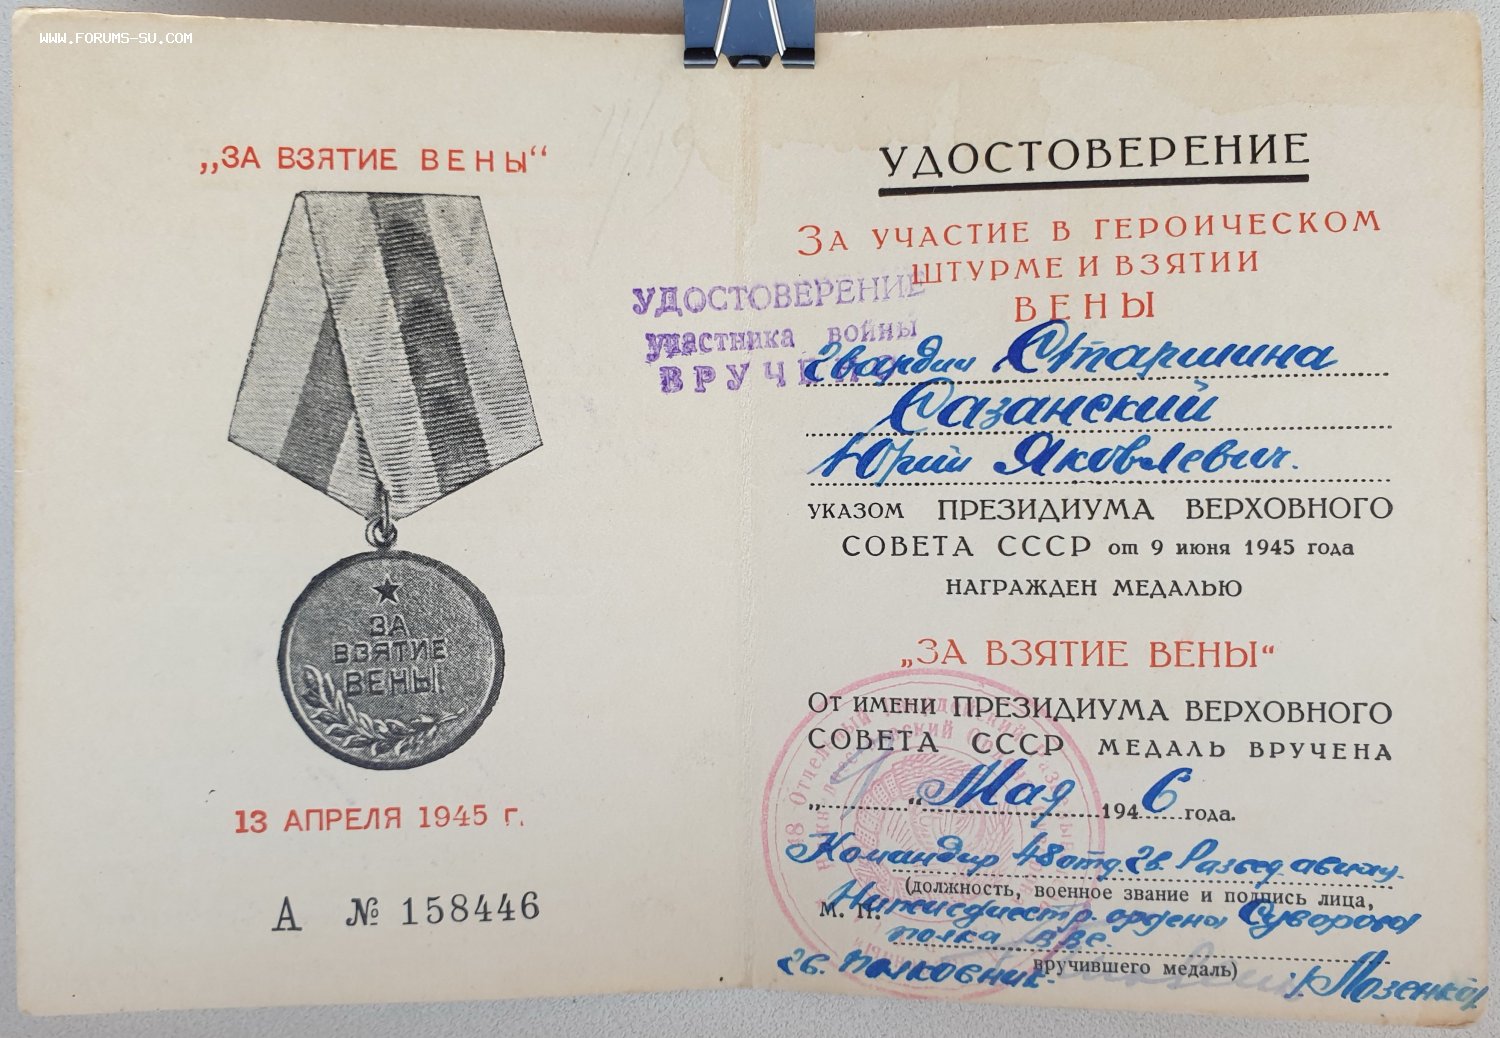 www.forums-su.com
„ЗА ВЗЯТИЕ ВЕНЫ“
ЗА
ВЗЯТИЕ
ВЕНЫ
13 АПРЕЛЯ 1945 г.
А № 158446
УДОСТОВЕРЕНИЕ
участника войны
ВРУЧЕНО
УДОСТОВЕРЕНИЕ
ЗА УЧАСТИЕ В ГЕРОИЧЕСКОМ
ШТУРМЕ И ВЗЯТИИ
ВЕНЫ
Гвардии Старшина
Сазанский
Юрий Яковлевич.
УКАЗОМ ПРЕЗИДИУМА ВЕРХОВНОГО
СОВЕТА СССР от 9 июня 1945 года
НАГРАЖДЕН МЕДАЛЬЮ
„ЗА ВЗЯТИЕ ВЕНЫ“
ОТ ИМЕНИ ПРЕЗИДИУМА ВЕРХОВНОГО
СОВЕТА СССР МЕДАЛЬ ВРУЧЕНА
„9“ Мая 1946 года.
Командир 48 отд. гв. Развед. авиац.
(должность, военное звание и подпись лица,
М. П. Нижнеднестр. ордена Суворова
полка ВВС.
вручившего медаль)
гв. полковник.
48 Отдельный Гвардейский